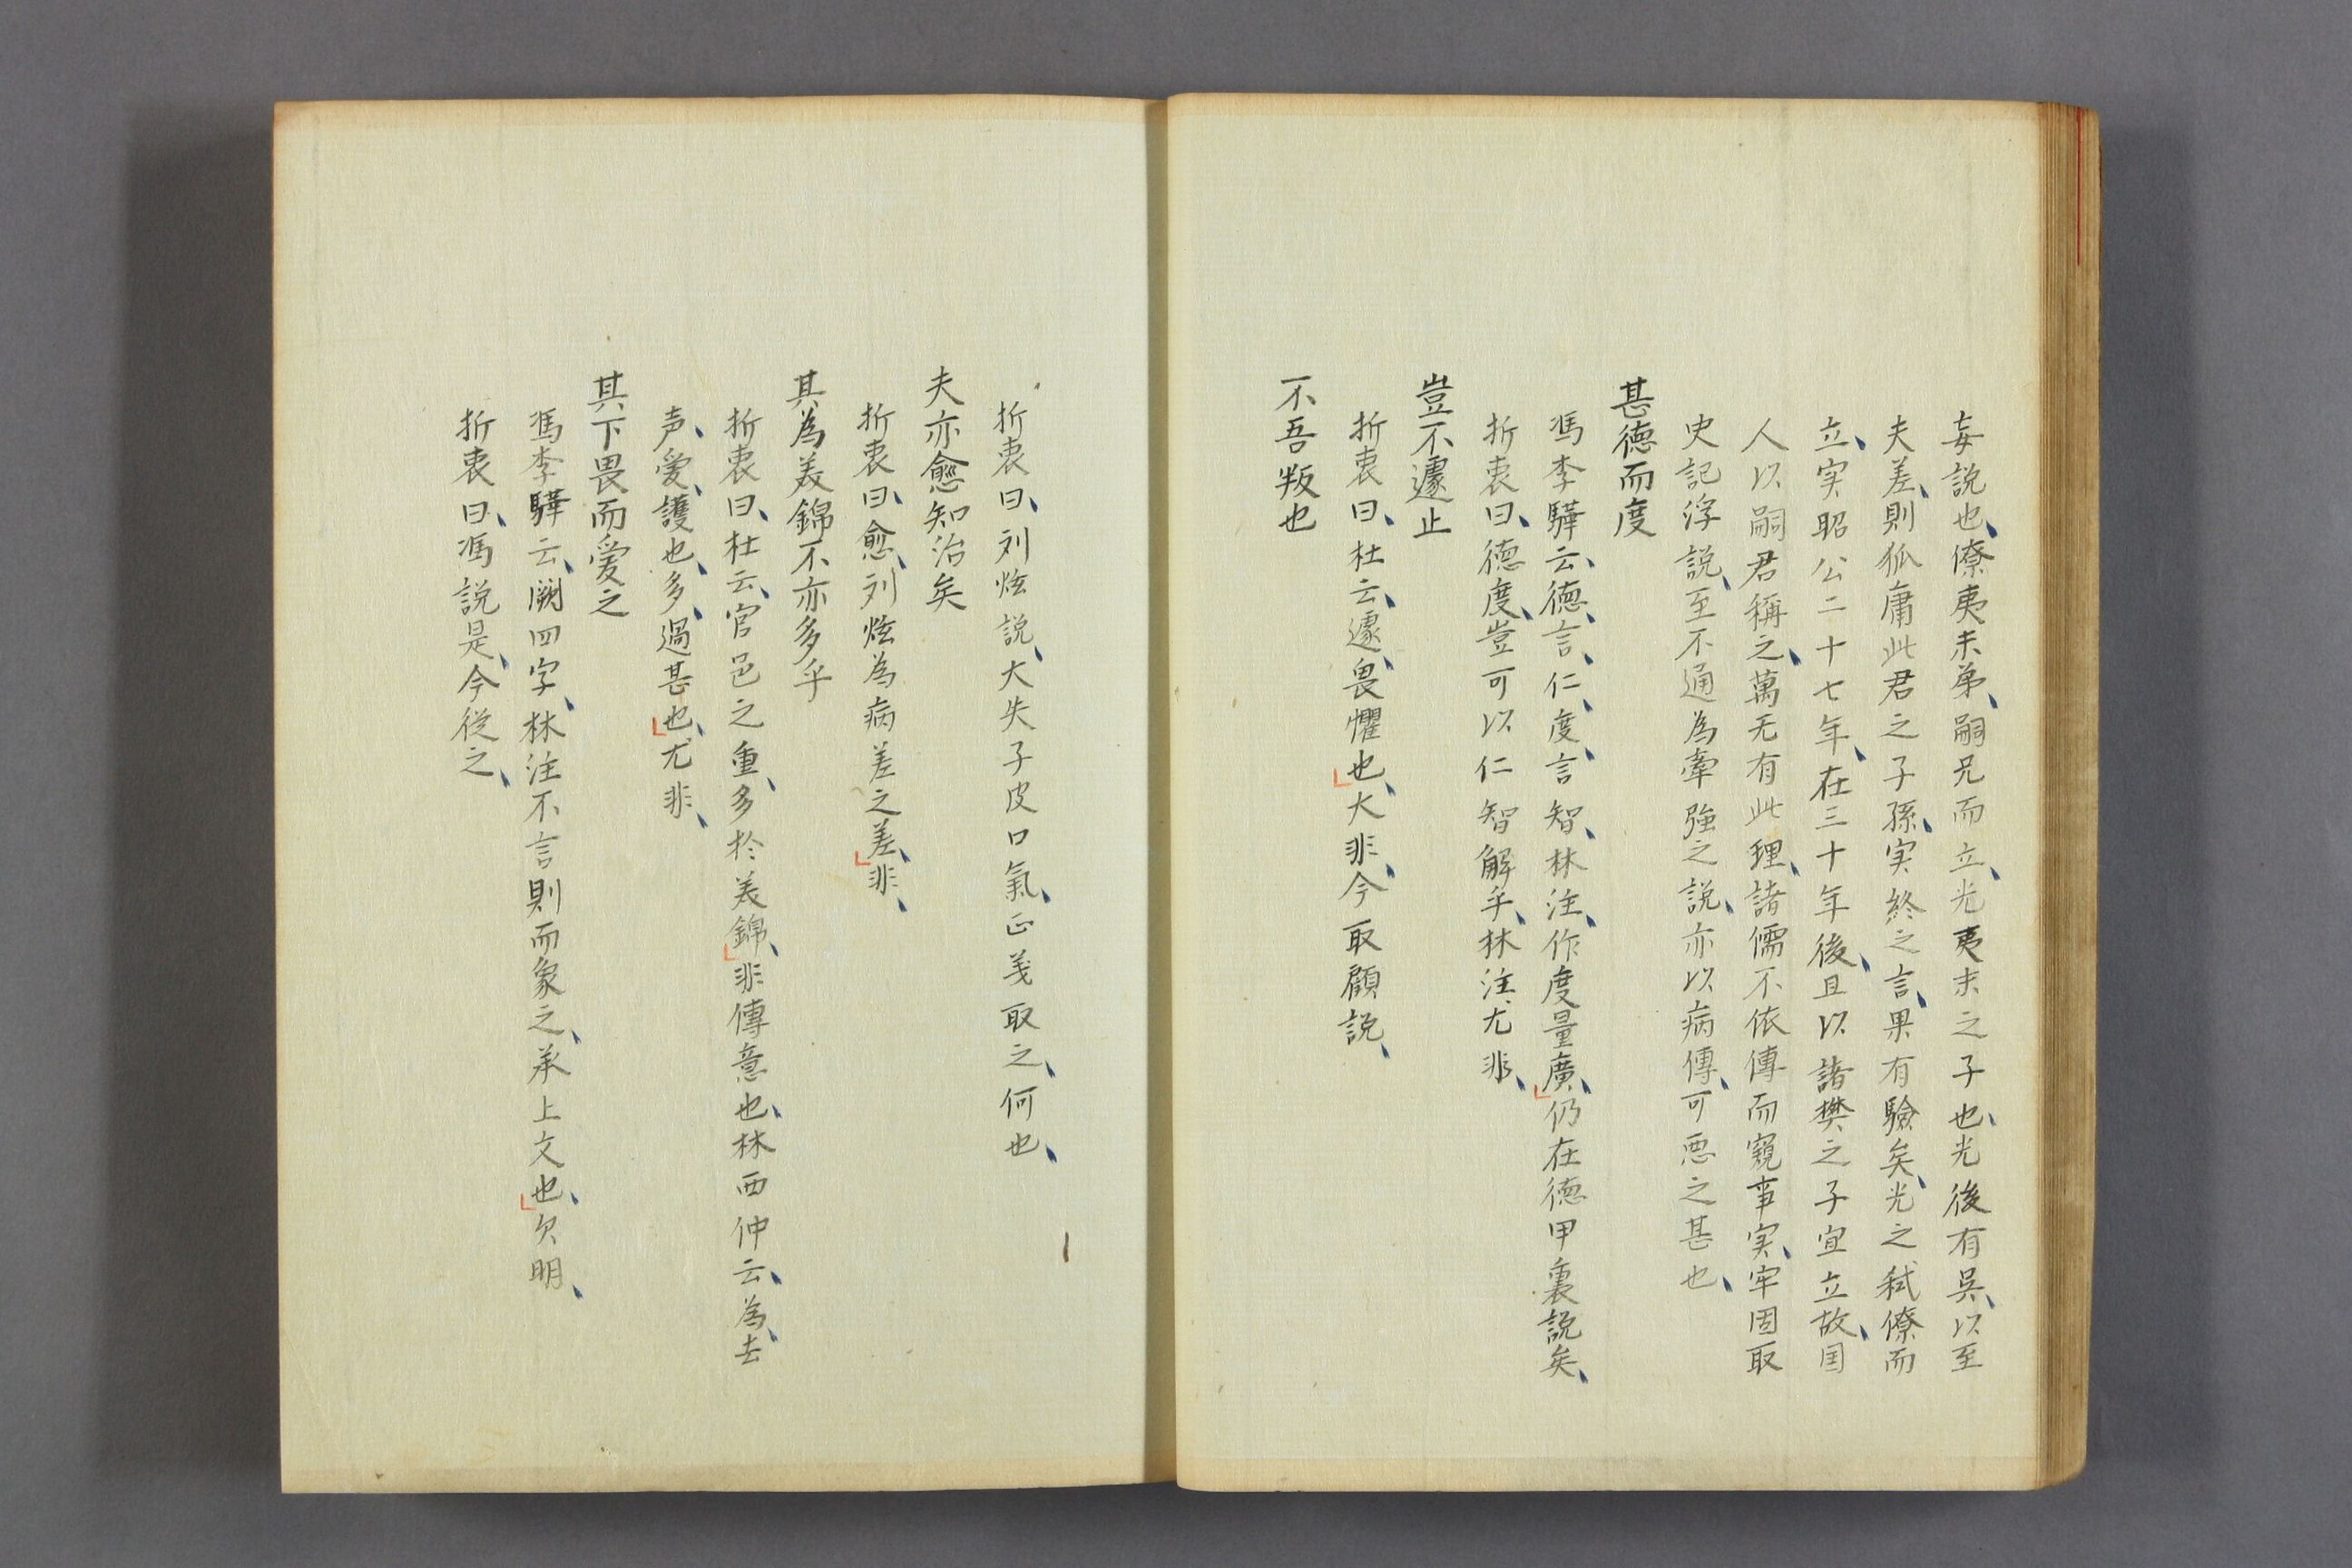 妄説也、僚夷末弟、嗣兄而立、光夷末之子也、光後有吳、以至
夫差、則狐庸此君之子孫、実終之言、果有驗矣、光之弑僚而
立、実昭公二十七年、在三十年後、且以諸樊之子宜立故、国
人以嗣君稱之、萬无有此理、諸儒不依傳而窺事実、牢固取
史記浮説、至不通為牽強之説、亦以病傳、可悪之甚也、
甚徳而度
馮李驊云、德、言、仁、度、言智、林注、作度量廣、仍在徳甲裏説矣、
折衷曰、德度、豈可以仁智解乎、林注、尤非、
豈不遽止
折衷曰、杜云、遽、畏懼也、大非、今取顧説、
不吾叛也
折衷曰、列炫説、大失子皮口氣、正義取之、何也、
夫亦愈知治矣
折衷曰、愈、列炫為病差之差、非、
其為美錦不亦多乎
折衷曰、杜云、官邑之重、多於美錦、非傳意也、林西仲云、為、去
声、愛、護也、多、過甚也、尤非、
其下畏而爱之
馮李驊云、闕四字、林注不言則而象之、承上文也、欠明、
折衷曰、馮説是、今從之、